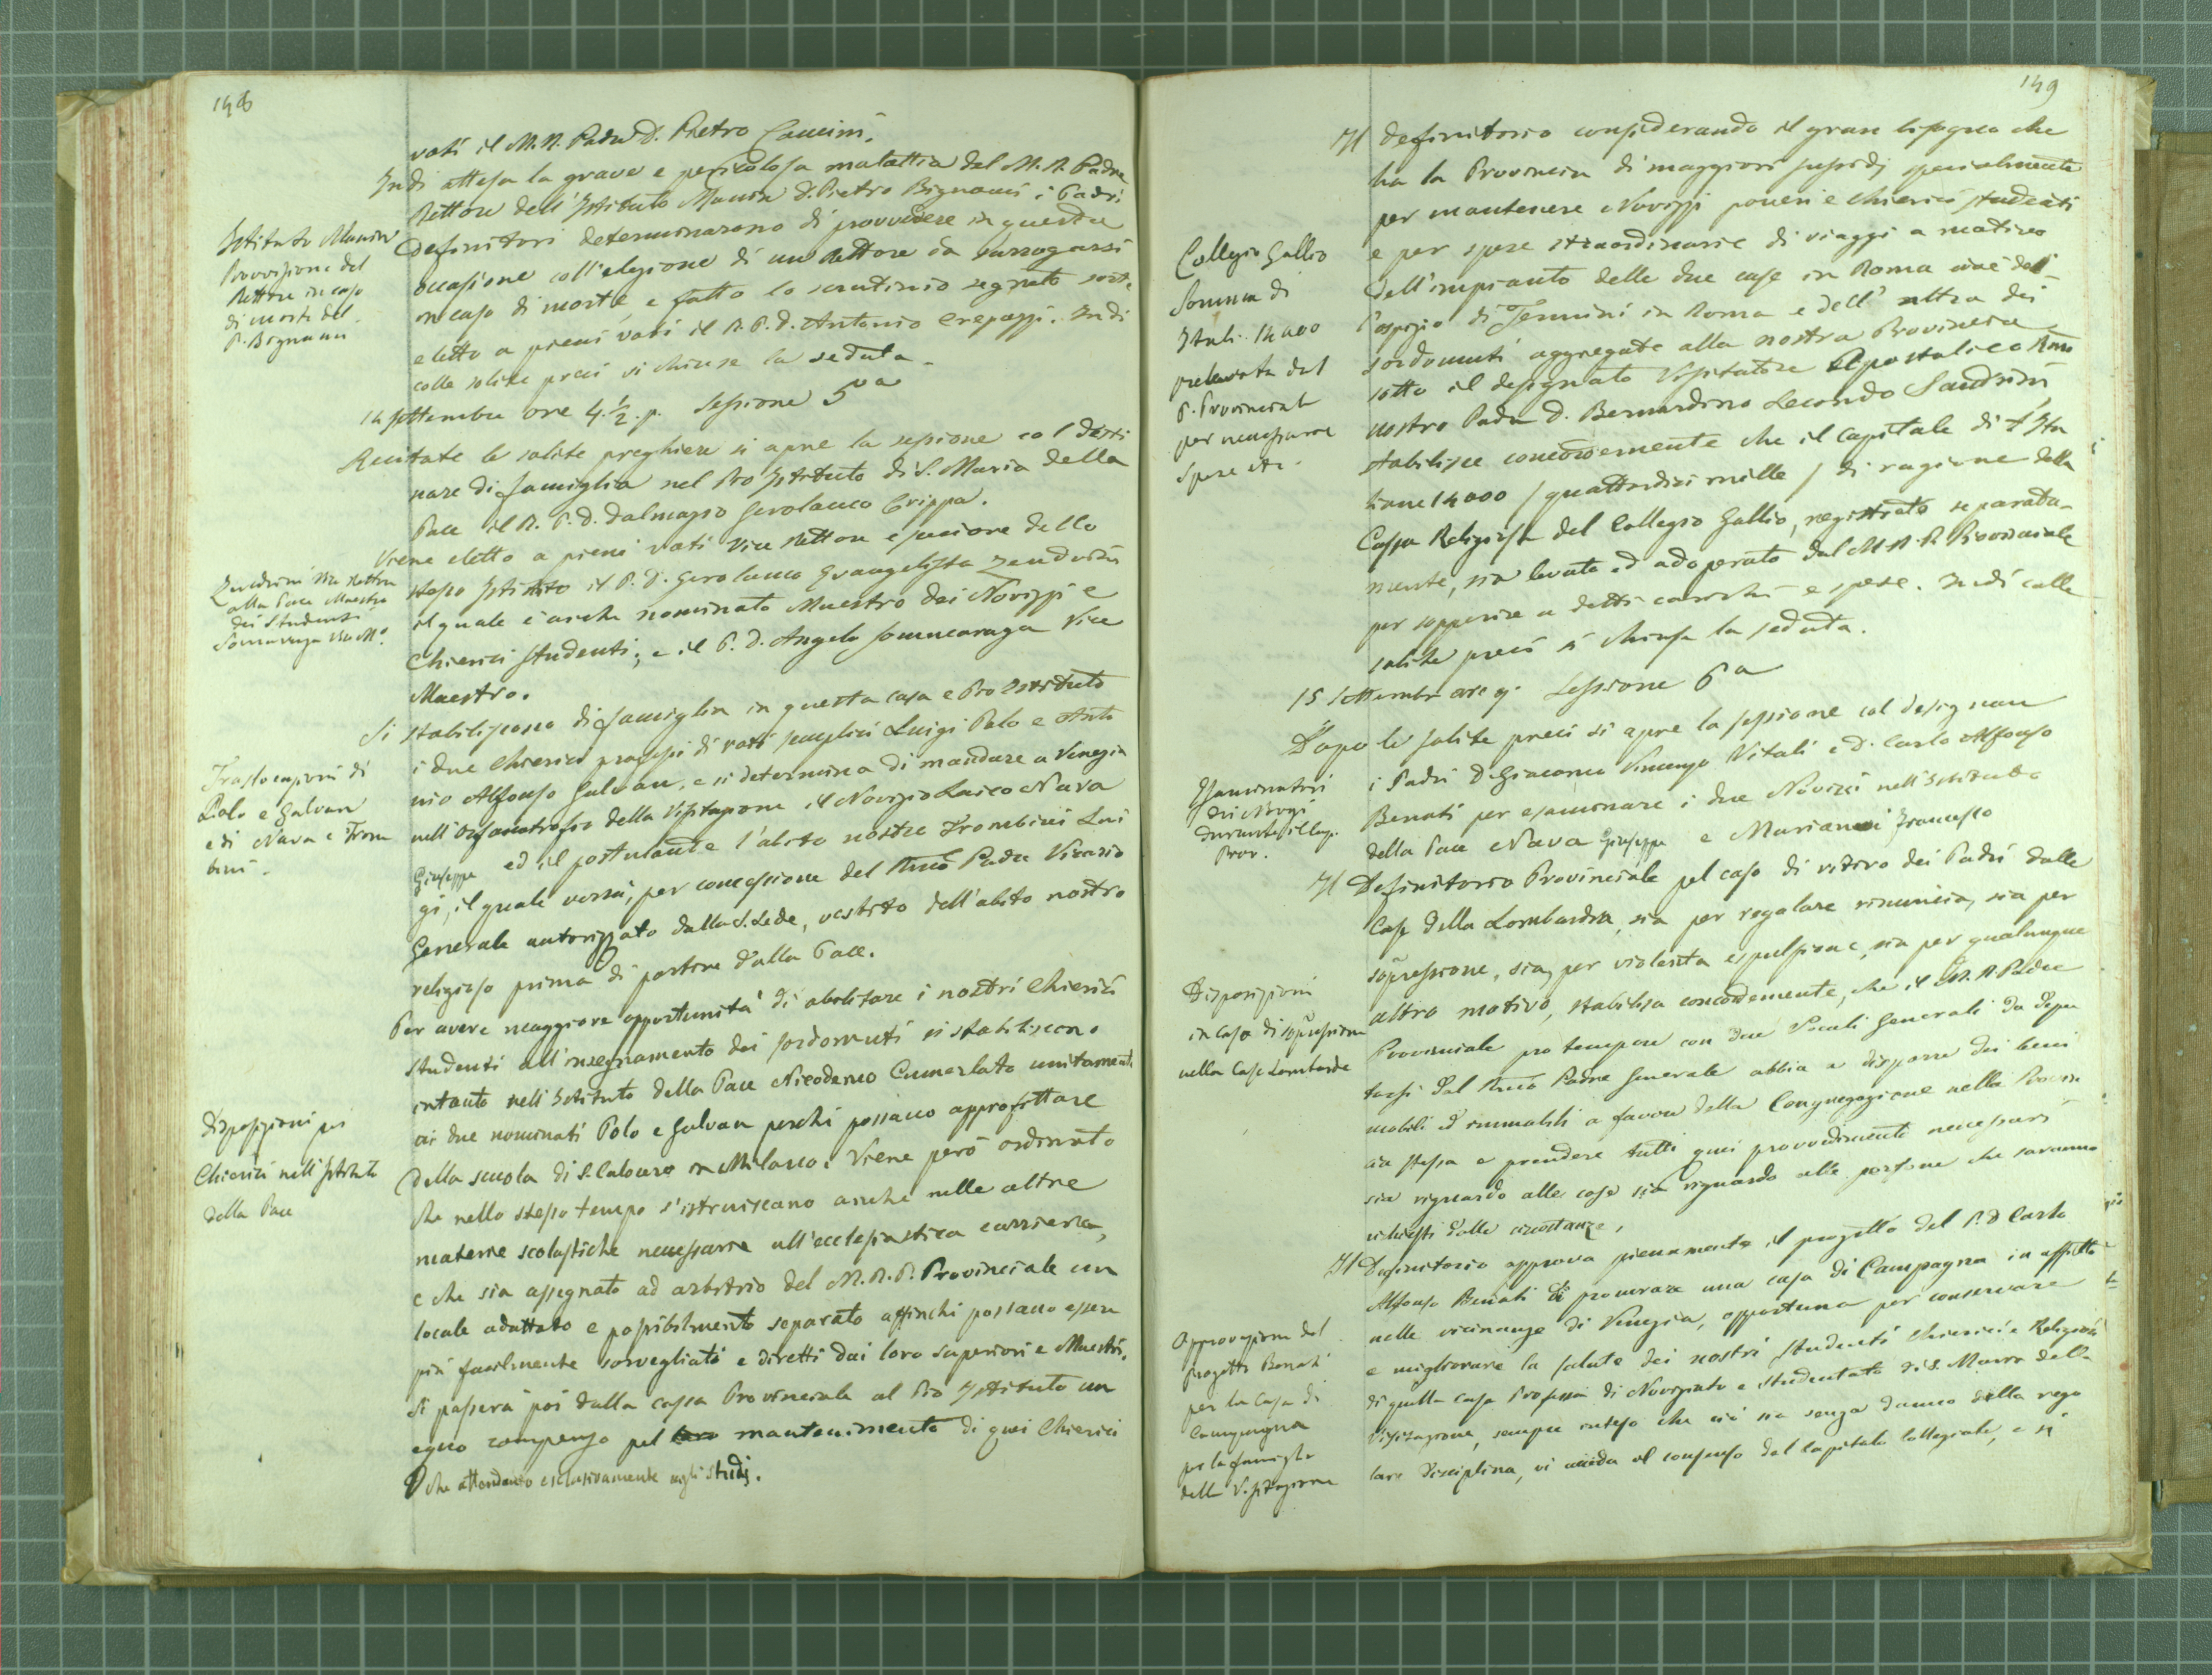 148
voti il M. R. Padre D. Pietro Camini.
Indi attesa la grave e pericolosa malattia del M. R. Padre
Rettore dell'Istituto Manin D. Pietro Bignami i Padri
Definitori determinarono di provvedere in questa
occasione coll'elezione di un Rettore da surrogarsi
in caso di morte, e fatto lo scrutinio segreto sortì
eletto a pieni voti il R. P. D. Antonio Crepazzi. Indi
colle solite preci si chiuse la seduta.
Istituto Manin
Provvisione del
Rettore in caso
di morte del
P. Bignami
14 Settembre ore 4. 1/2. p. Sessione 5a
Recitate le solite preghiere si apre la sessione col desti
nare di famiglia nel Pio Istituto di S. Maria della
Pace il R. P. D. Dalmazzo Gerolamo Crippa.
Viene eletto a pieni voti Vice Rettore e seniore dello
stesso Istituto il P. D. Gerolamo Evangelista Zendrini
il quale è anche nominato Maestro dei Novizzi e
Chierici studenti; e il P. D. Angelo Sommaruga Vice
Maestro.
Zendrini Vice Rettore
alla Pace Maestro
dei Studenti
Sommaruga Vice Mo.
Si stabiliscono di famiglia in questa casa e Pio Istituto
i due Chierici professi di voti semplici Luigi Polo e Anto
nio Alfonso Galvan, e si determina di mandare a Venezia
nell'Orfanotrofio della Visitazione il Novizio Laico Nava
Giuseppe ed il postulante l'abito nostro Trombini Lui
gi, il quale verrà, per concessione del Rmo Padre Vicario
Generale autorizzato dalla S. Sede, vestito dell'abito nostro
religioso prima di partire dalla Pace.
Traslocazioni di
Polo e Galvan
e di Nava e Trom
bini.
Per avere maggiore opportunità di abilitare i nostri Chierici
studenti all'insegnamento dei sordomuti si stabiliscono
intanto nell'Istituto della Pace Nicodemo Cumerlato unitamente
ai due nominati Polo e Galvan perchè possano approfittare
della scuola di S. Calocero in Milano. Viene però ordinato
che nello stesso tempo s'istruiscano anche nelle altre
materie scolastiche necessarie all'ecclesiastica carriera,
e che sia assegnato ad arbitrio del M. R. P. Provinciale un
locale adattato e possibilmente separato affinchè possano essere
più facilmente sorvegliati e diretti dai loro Superiori e Maestri.
Si passerà poi dalla cassa Provinciale al Pio Istituto un
equo compenso pel loro mantenimento di quei Chierici
che attendono esclusivamente agli studj.
Disposizioni pei
Chierici nell'Istituto
della Pace
149
Il Definitorio considerando il gran bisogno che
ha la Provincia di maggiori sussidj specialmente
per mantenere Novizzi poveri e Chierici studenti
e per spese straordinarie di viaggi a motivo
dell'impianto delle due case in Roma cioè del-
l'ospizio di Termini in Roma e dell'altra dei
sordomuti aggregate alla nostra Provincia
sotto il designato Visitatore Apostolico Rmo
nostro Padre D. Bernardino Secondo Sandrini
stabilisce concordemente che il capitale di £ Ita
liane 14000 / quattordici mille / di ragione della
Cassa Religiosa del Collegio Gallio, registrato separata-
mente, sia levato ed adoperato dal M. R. P. Provinciale
per sopperire a detti carichi e spese. Indi colle
solite preci si chiuse la seduta.
Collegio Gallio
Somma di
Itali. 14000
prelevata dal
P. Provinciale
per necessarie
spese etc.
15 Settembre ore 9. Sessione 6a
Dopo le solite preci si apre la sessione col designare
i Padri D. Giacomo Vincenzo Vitali e D. Carlo Alfonso
Benati per esaminare i due Novizi nell'Istituto
della Pace Nava Giuseppe e Marianni Francesco
Esaminatori
dei Novizi
durante il Cap.
Prov.
Il Definitorio Provinciale pel caso di ritiro dei Padri dalle
Case della Lombardia, sia per regolare rinuncia, sia per
soppressione, sia per violenta espulsione, sia per qualunque
altro motivo, stabilisce concordemente, che il M. R. Padre
Provinciale pro tempore con due Vocali Generali da depu
tarsi dal Rmo Padre Generale abbia a disporre dei beni
mobili ed immobili a favore della Congregazione nella Provin
cia stessa e prendere tutti quei provvedimenti necessarj
sia riguardo alle cose sia riguardo alle persone che saranno
richiesti dalle circostanze.
Disposizioni
in caso di soppressione
nelle Case Lombarde
Il Definitorio approva pienamente il progetto del P. D. Carlo
Alfonso Benati di procurare una casa di Campagna in affitto
nelle vicinanze di Venezia, opportuna per conservare
e migliorare la salute dei nostri studenti Chierici e Religiosi
di quella casa Professa di Noviziato e Studentato di S. Maria della
Visitazione, sempre inteso che ciò sia senza danno della rego
lare disciplina, vi acceda il consenso del Capitolo Collegiale, e si
Approvazione del
progetto Benati
per la Casa di
Campagna
per la famiglia
della Visitazione